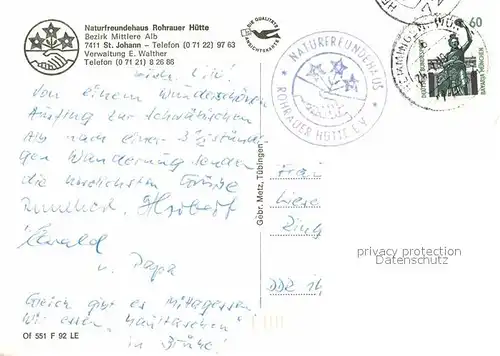 Naturfreundehaus Rohrauer Hütte
Bezirk Mittlere Alb
7411 St. Johann – Telefon (0 71 22) 97 63
Verwaltung E. Walther
Telefon (0 71 21) 8 26 86
DIE QUALITÄTS
ANSICHTSKARTE
NATURFREUNDEHAUS
ROHRAUER HÜTTE E.V.
60
DEUTSCHE BUNDESPOST
BAVARIA MÜNCHEN
Von einem wunderschönen
Ausflug zur schwäbischen
Alb nach einer 3 1/2 stündi-
gen Wanderung senden
die herzlichsten Grüße
Herbert
Ewald
u. Papa
Gleich gibt es Mittagessen
Wir essen "Maultaschen"
in Brühe!
Gebr. Metz, Tübingen
Frau
DDR
privacy protection
Datenschutz
Of 551 F 92 LE